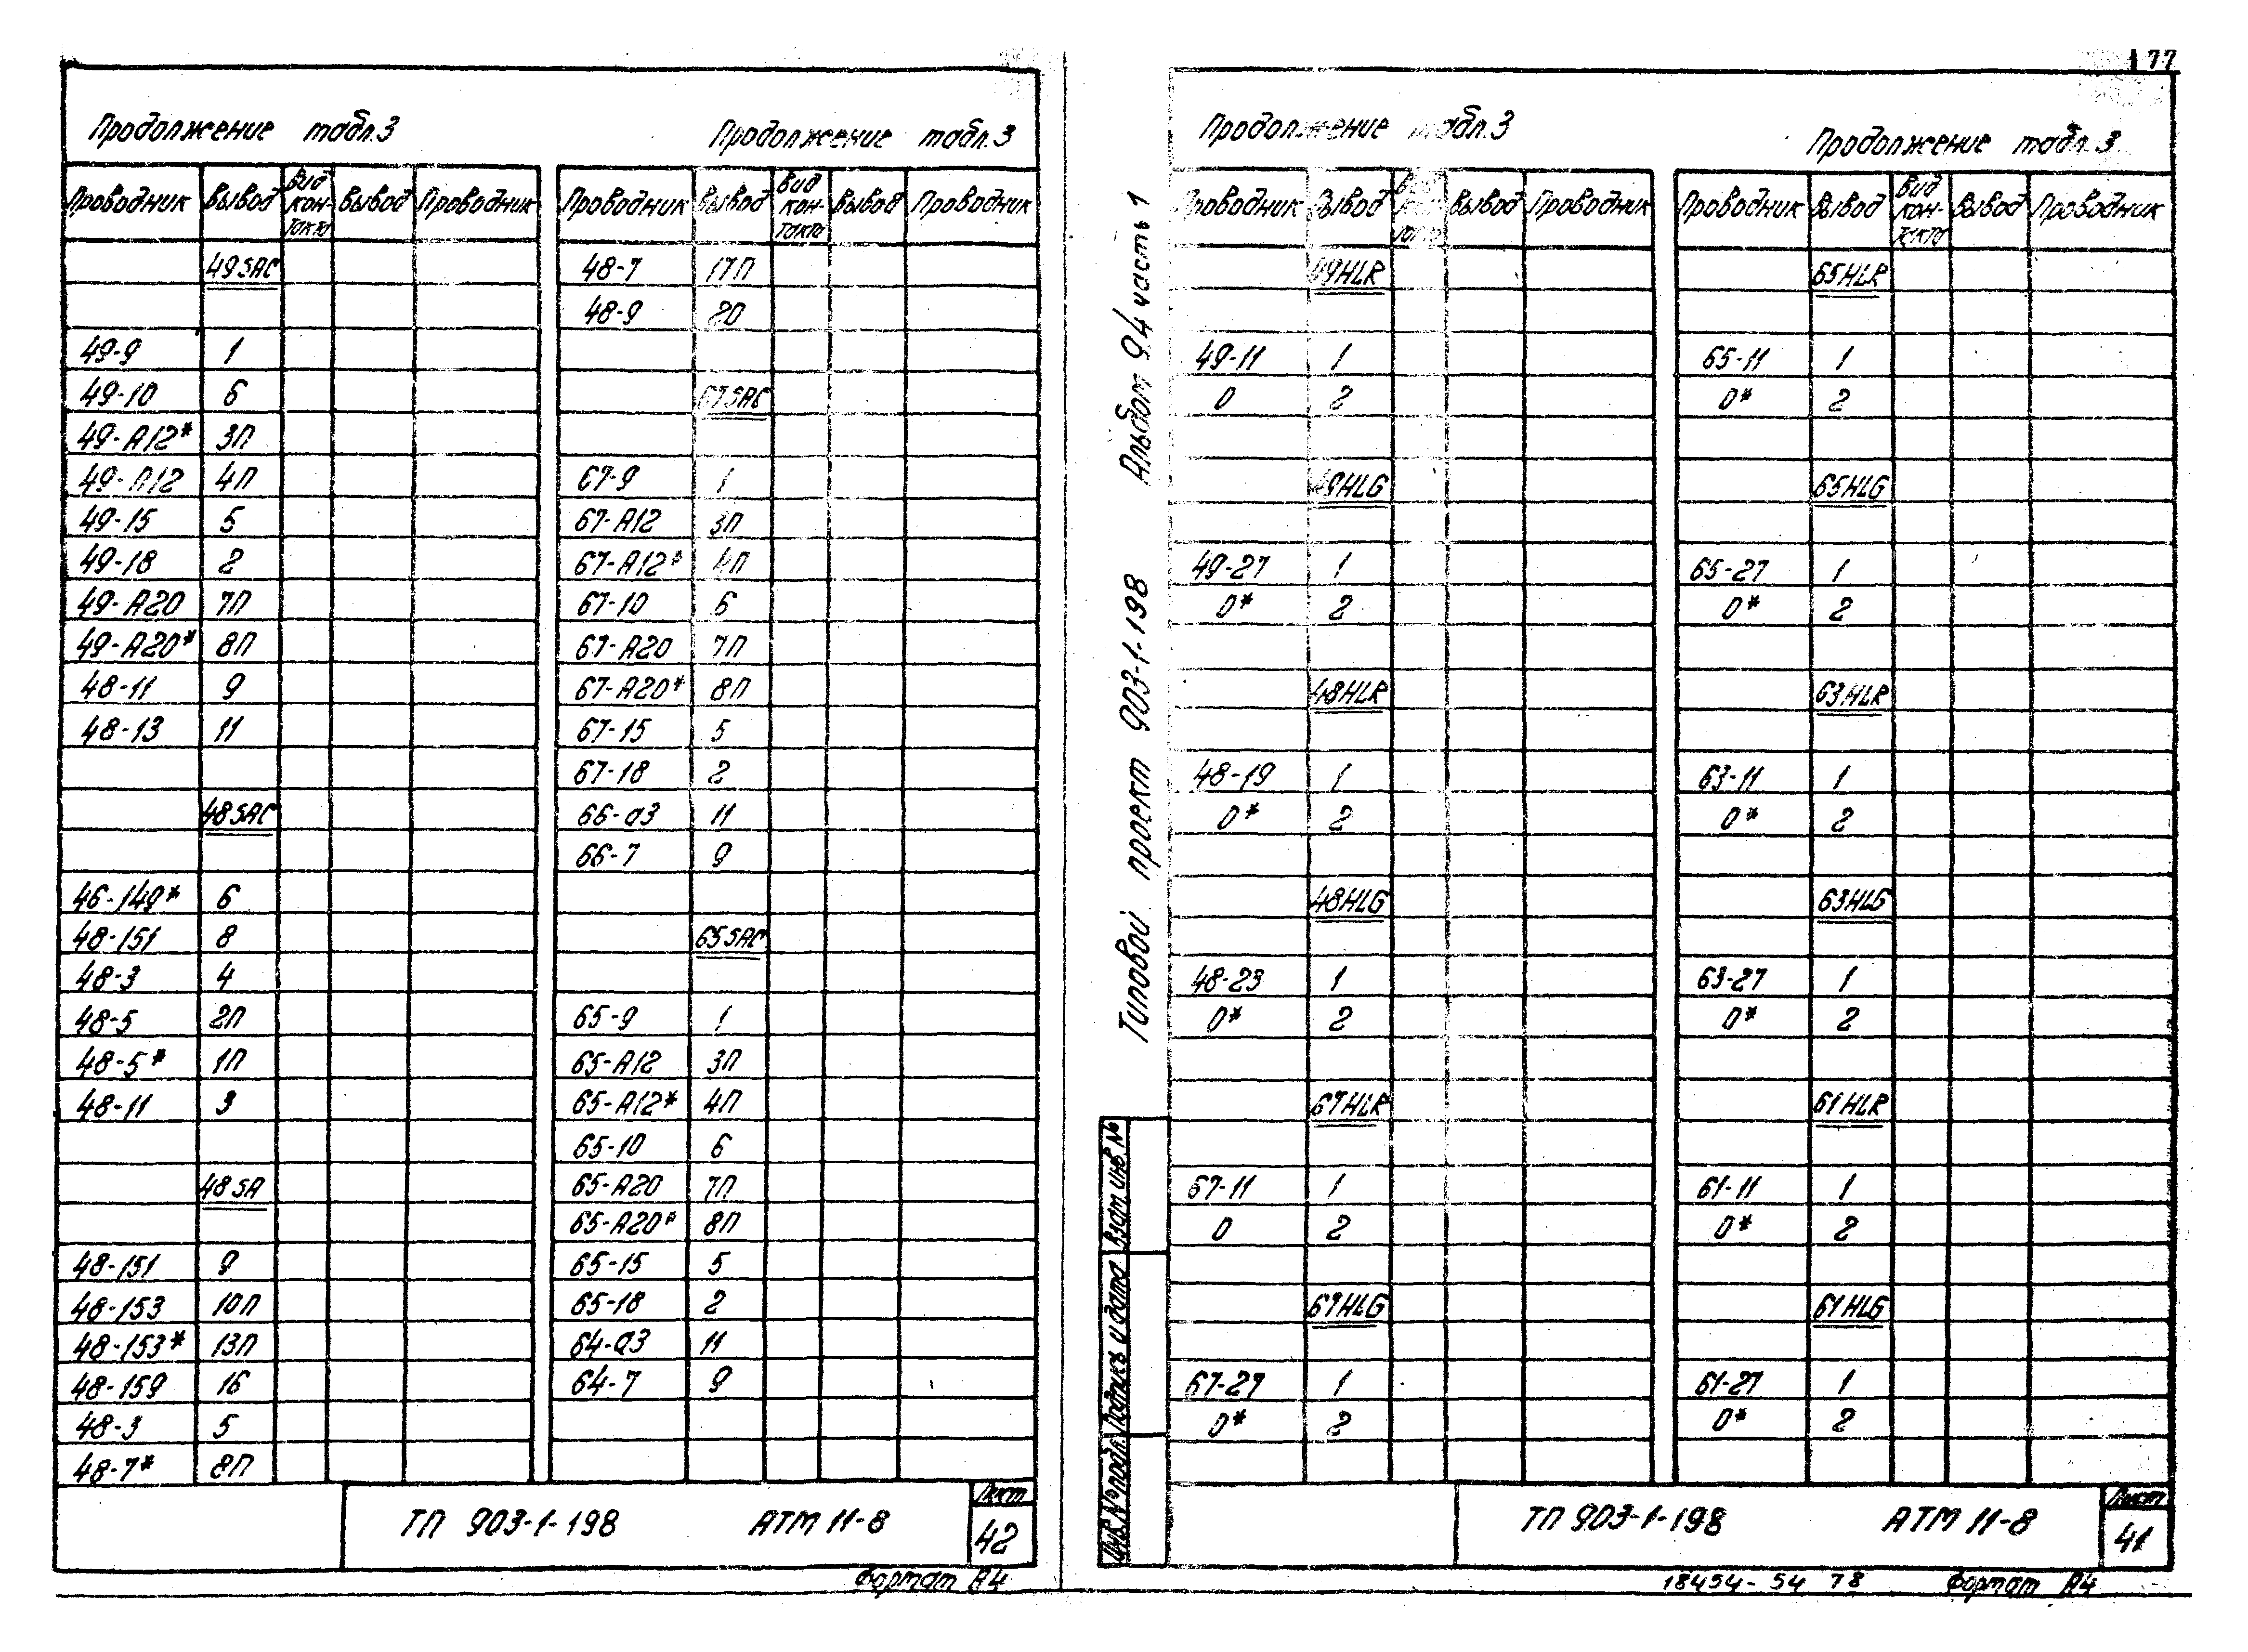 177
Продолжение табл.3
Продолжение табл.3
Проводник Вывод Вид кон-такта Вывод Проводник
Проводник Вывод Вид кон-такта Вывод Проводник
49SAC
49-9 1
49-10 6
49-А12* 3П
49-А12 4П
49-15 5
49-18 2
49-А20 7П
49-А20* 8П
48-11 9
48-13 11
48SAC
46-149* 6
48-151 8
48-3 4
48-5 2П
48-5* 1П
48-11 3
48SA
48-151 9
48-153 10П
48-153* 13П
48-159 16
48-3 5
48-7* 8П
48-7 17П
48-9 20
67SAC
67-9 1
67-А12 3П
67-А12* 4П
67-10 6
67-А20 7П
67-А20* 8П
67-15 5
67-18 2
66-а3 11
66-7 9
65SAC
65-9 1
65-А12 3П
65-А12* 4П
65-10 6
65-А20 7П
65-А20* 8П
65-15 5
65-18 2
64-а3 11
64-7 9
ТП 903-1-198 АТМ 11-8
Лист
42
Формат А4
Типовой проект 903-1-198 Альбом 9.4 часть 1
Взам. инв. №
Подпись и дата
Инв. № подл.
Продолжение табл.3
Продолжение табл.3
Проводник Вывод Вид кон-такта Вывод Проводник
Проводник Вывод Вид кон-такта Вывод Проводник
49HLR
49-11 1
0 2
49HLG
49-27 1
0* 2
48HLR
48-19 1
0* 2
48HLG
48-23 1
0* 2
67HLR
67-11 1
0 2
67HLG
67-27 1
0* 2
65HLR
65-11 1
0* 2
65HLG
65-27 1
0* 2
63HLR
63-11 1
0* 2
63HLG
63-27 1
0* 2
61HLR
61-11 1
0* 2
61HLG
61-27 1
0* 2
ТП 903-1-198 АТМ 11-8
Лист
41
18454-54 78 Формат А4